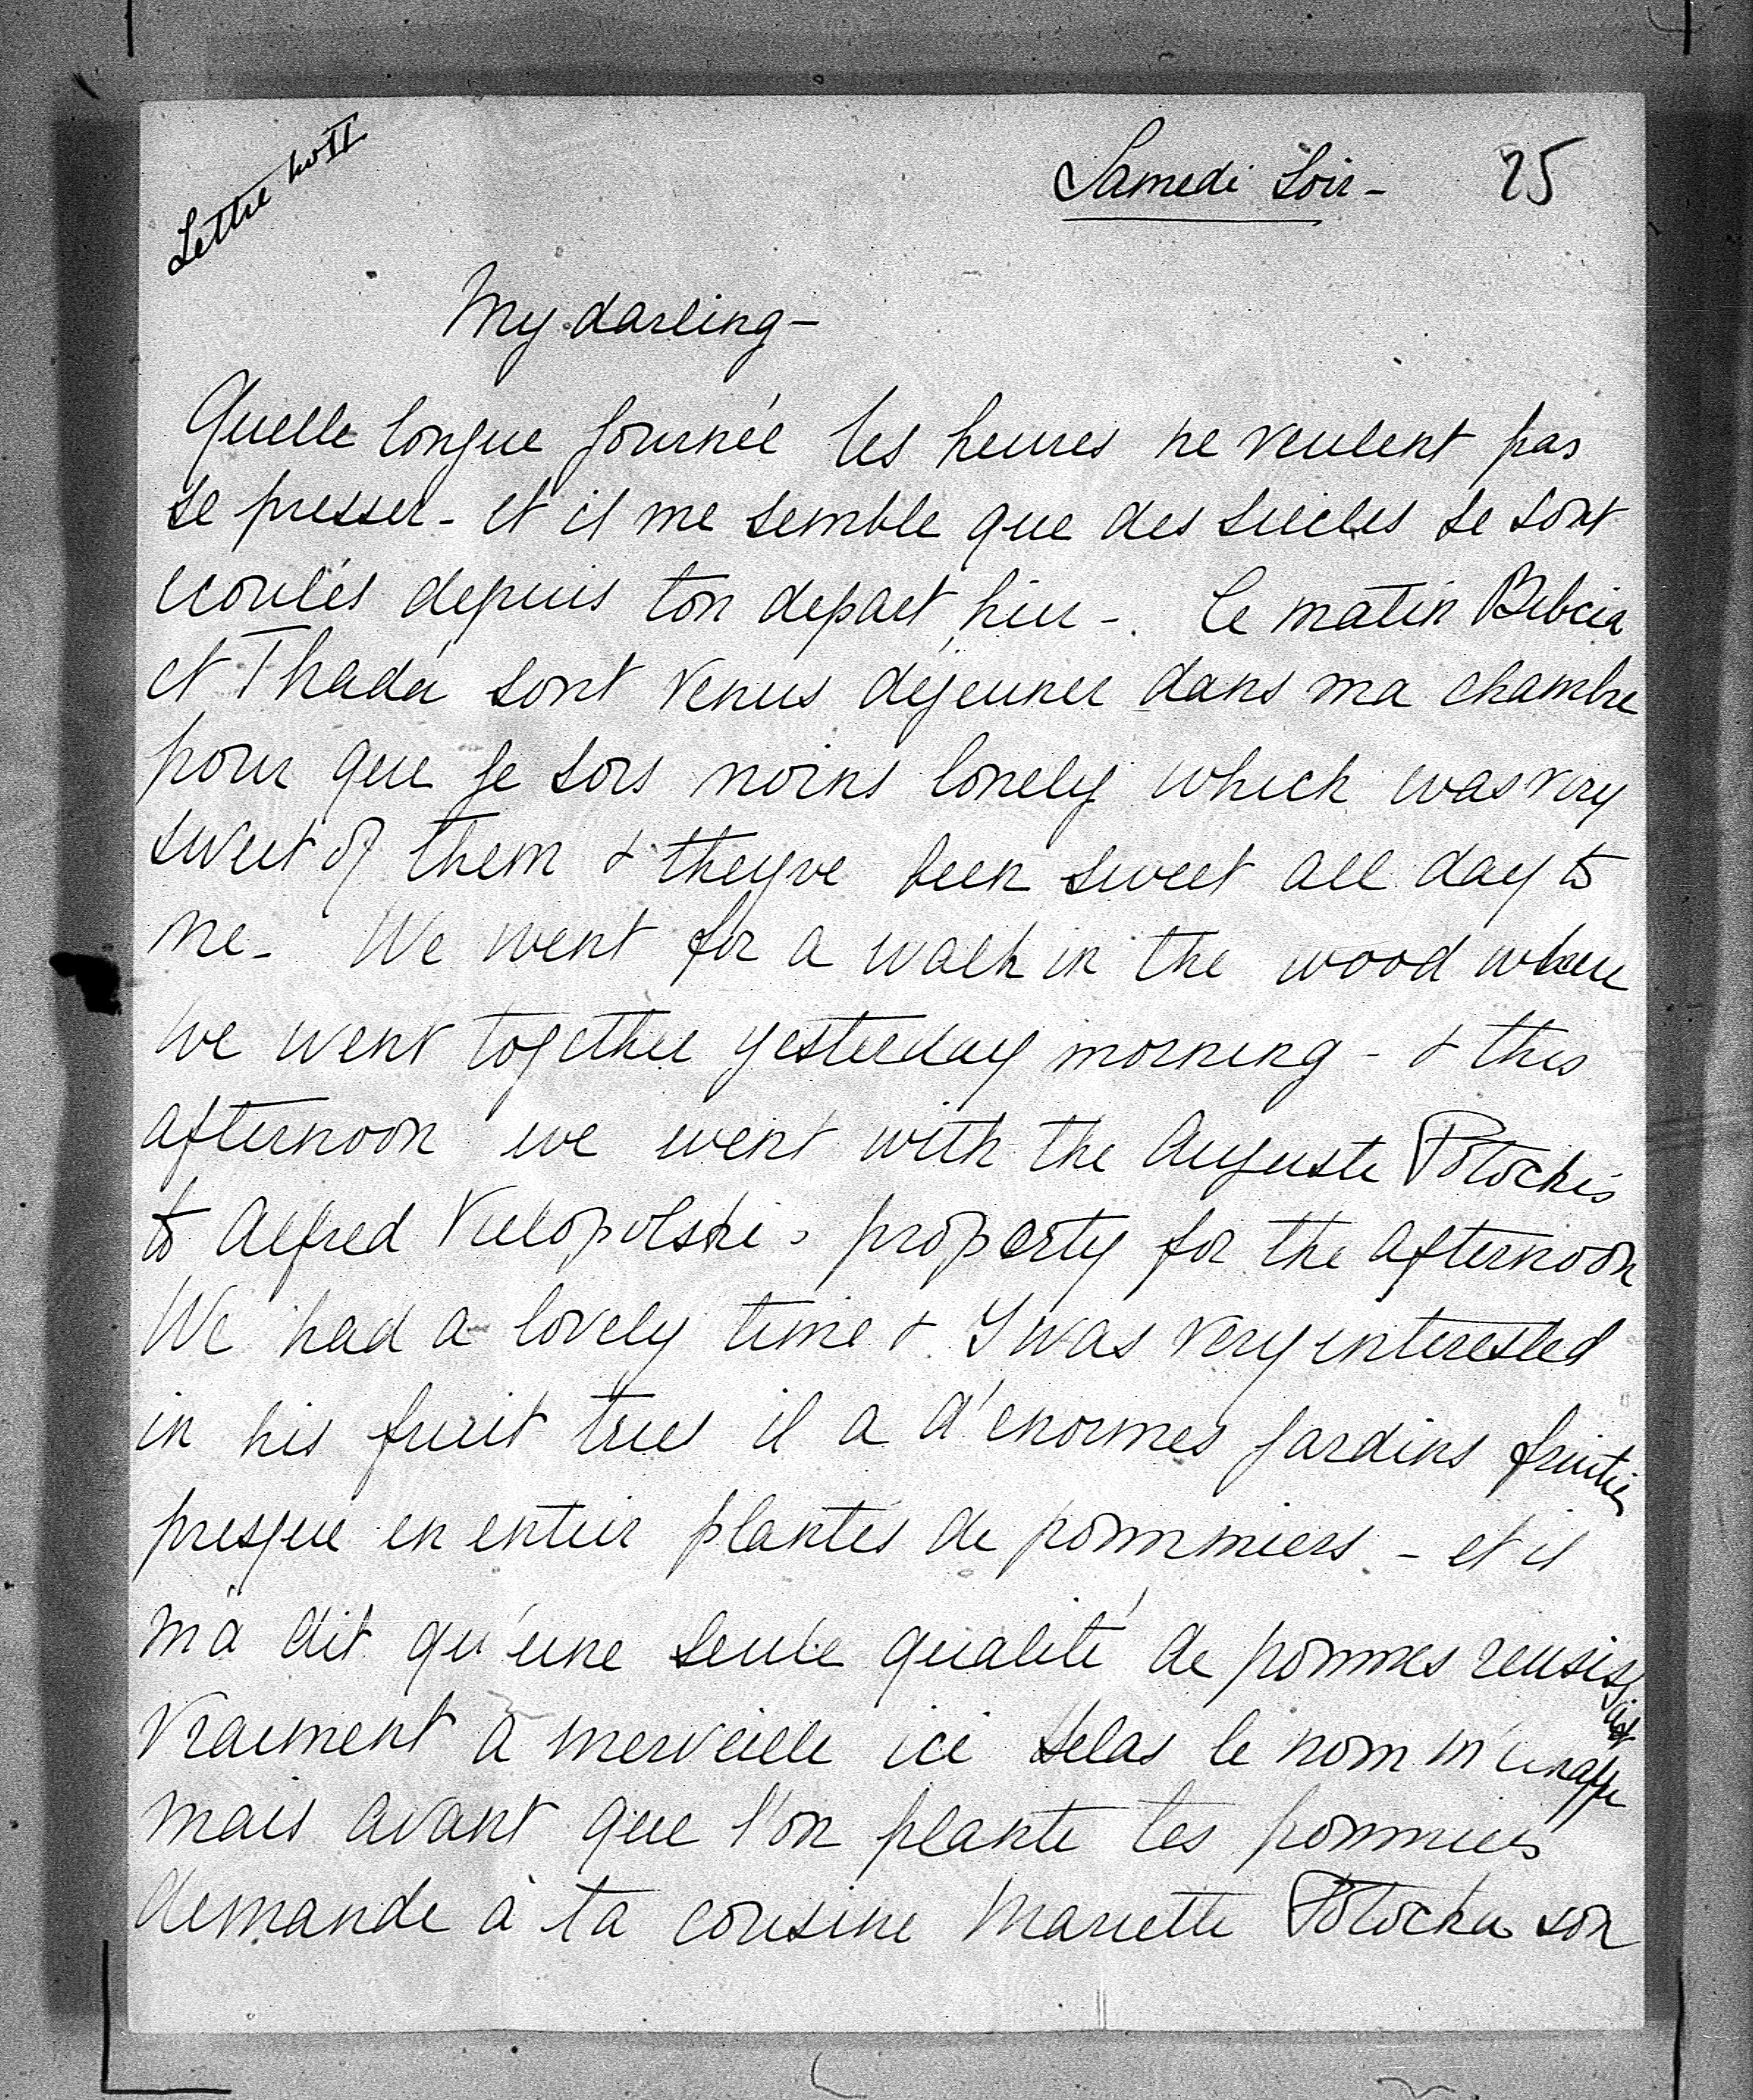 Lettre No II
Samedi Soir - 25
My darling -
Quelle longue journée les heures ne veulent pas
se presser - et il me semble que des siecles se sont
ecoulés depuis ton depart hier -. Ce matin Bibcia
et Thadé sont venus déjeuner dans ma chambre
pour que je sois moins lonely which was very
sweet of them & theyve been sweet all day to
me - We went for a walk in the wood where
we went together yesterday morning - & this
afternoon we went with the Auguste Potocki's
to Alfred Vielopolski's property for the afternoon
We had a lovely time & I was very interested
in his fruit trees il a d'enormes jardins fruitier
presque en entier plantés de pommiers - et il
m'a dit qu'une seule qualité de pommes reusissait
vraiment a merveille ici Helas le nom m'echappe
mais avant que l'on plante tes pommiers
demande à ta cousine Mariette Potocka son